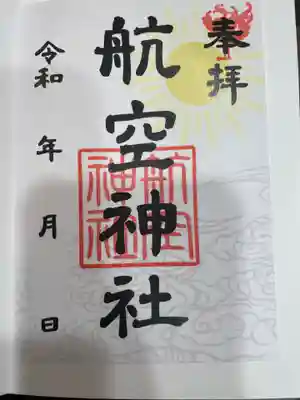 奉拝
航空神社
航空
神社
令和 年 月 日